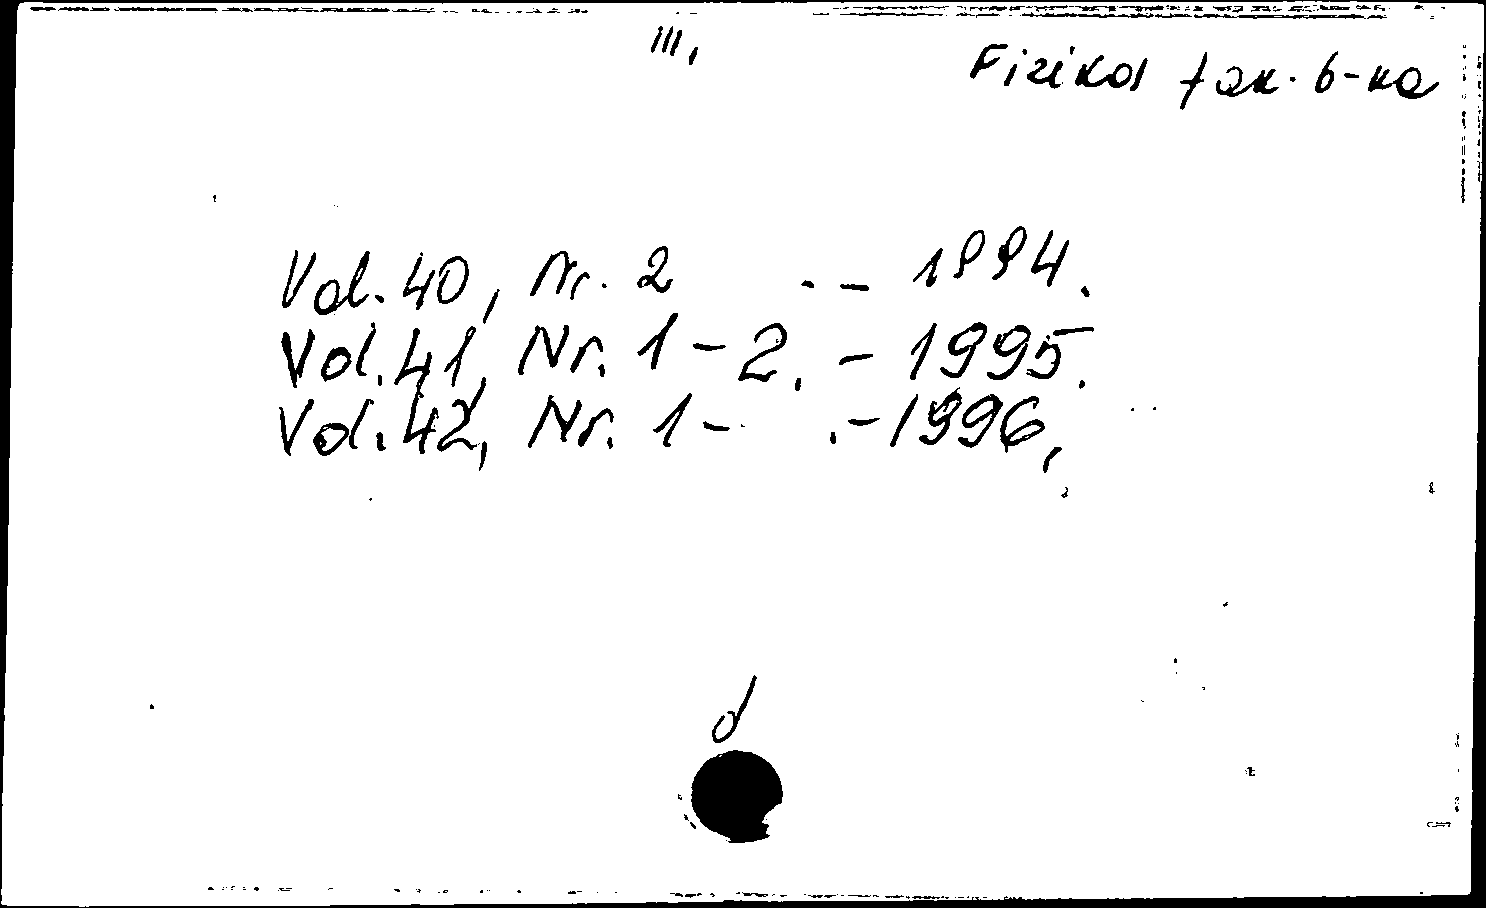 III.
Fizikos fak. b-ka
Vol. 40, Nr. 2 . - 1994.
Vol. 41, Nr. 1-2. - 1995.
Vol. 42, Nr. 1- . - 1996,
d